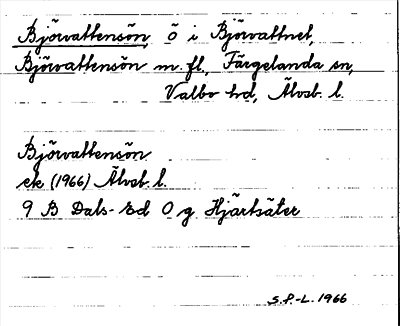 Björvattensön, ö i Björvattnet,
Björvattensön m.fl., Färgelanda sn,
Valbo hd, Älvsb. l.
Björvattensön
ek (1966) Älvsb. l.
9 B Dals-Ed 0 g Hjärtsäter
S.P.-L. 1966